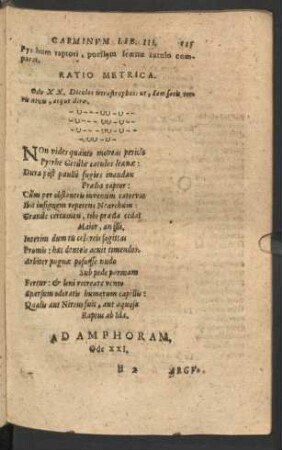 CARMINVM LIB. III. 135
Pyrrhum raptori, puellam leænæ catulo com-
parat.
RATIO METRICA.
Ode XX. Dicolos tetrastrophos ut, Iam satis ter-
ris
NON vides quanto moveas periclo
Pyrrhe Getulæ catulos leænæ:
Dura post paullo fugies inaudax
Prælia raptor:
Cùm per obstanteis iuvenum catervas
Ibit insignem repetens Nearchum:
Grande certamen, tibi præda cedat
Maior, an illi,
Interim dum tu celereis sagittas
Promis: hæc denteis acuit timendos.
Arbiter pugnæ posuisse nudo
Sub pede palmam
Fertur: & leni recreare vento
Sparsum odoratis humerum capillis:
Qualis aut Nireus fuit, aut aquosa
Raptus ab Ida.
AD AMPHORAM,
Ode XXI.
ARGV-